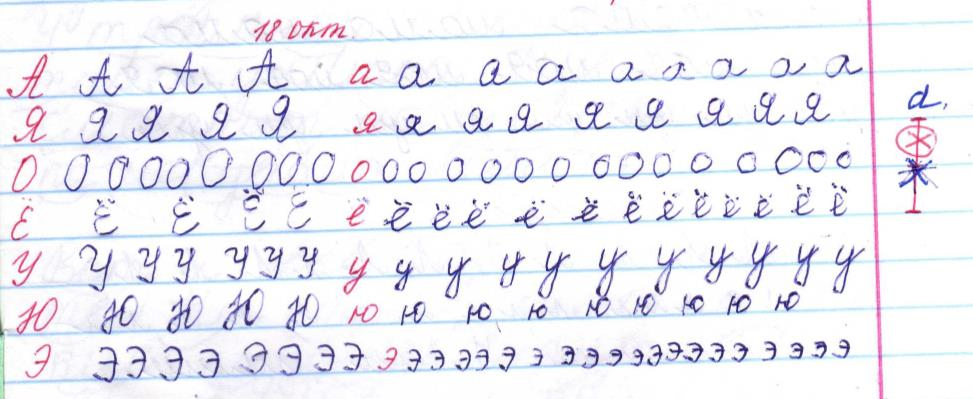 18 окт.
А А А А а а а а а а а а а
Я Я Я Я Я я я я я я я я я я
О О О О О О О О О о о о о о о о о о о о о о о о
Ё Ё Ё Ё Ё ё ё ё ё ё ё ё ё ё ё ё ё ё
У У У У У У У у у у у у у у у у у у
Ю Ю Ю Ю Ю ю ю ю ю ю ю ю ю ю
Э Э Э Э Э Э Э Э Э э э э э э э э э э э э э э э э э э э э э